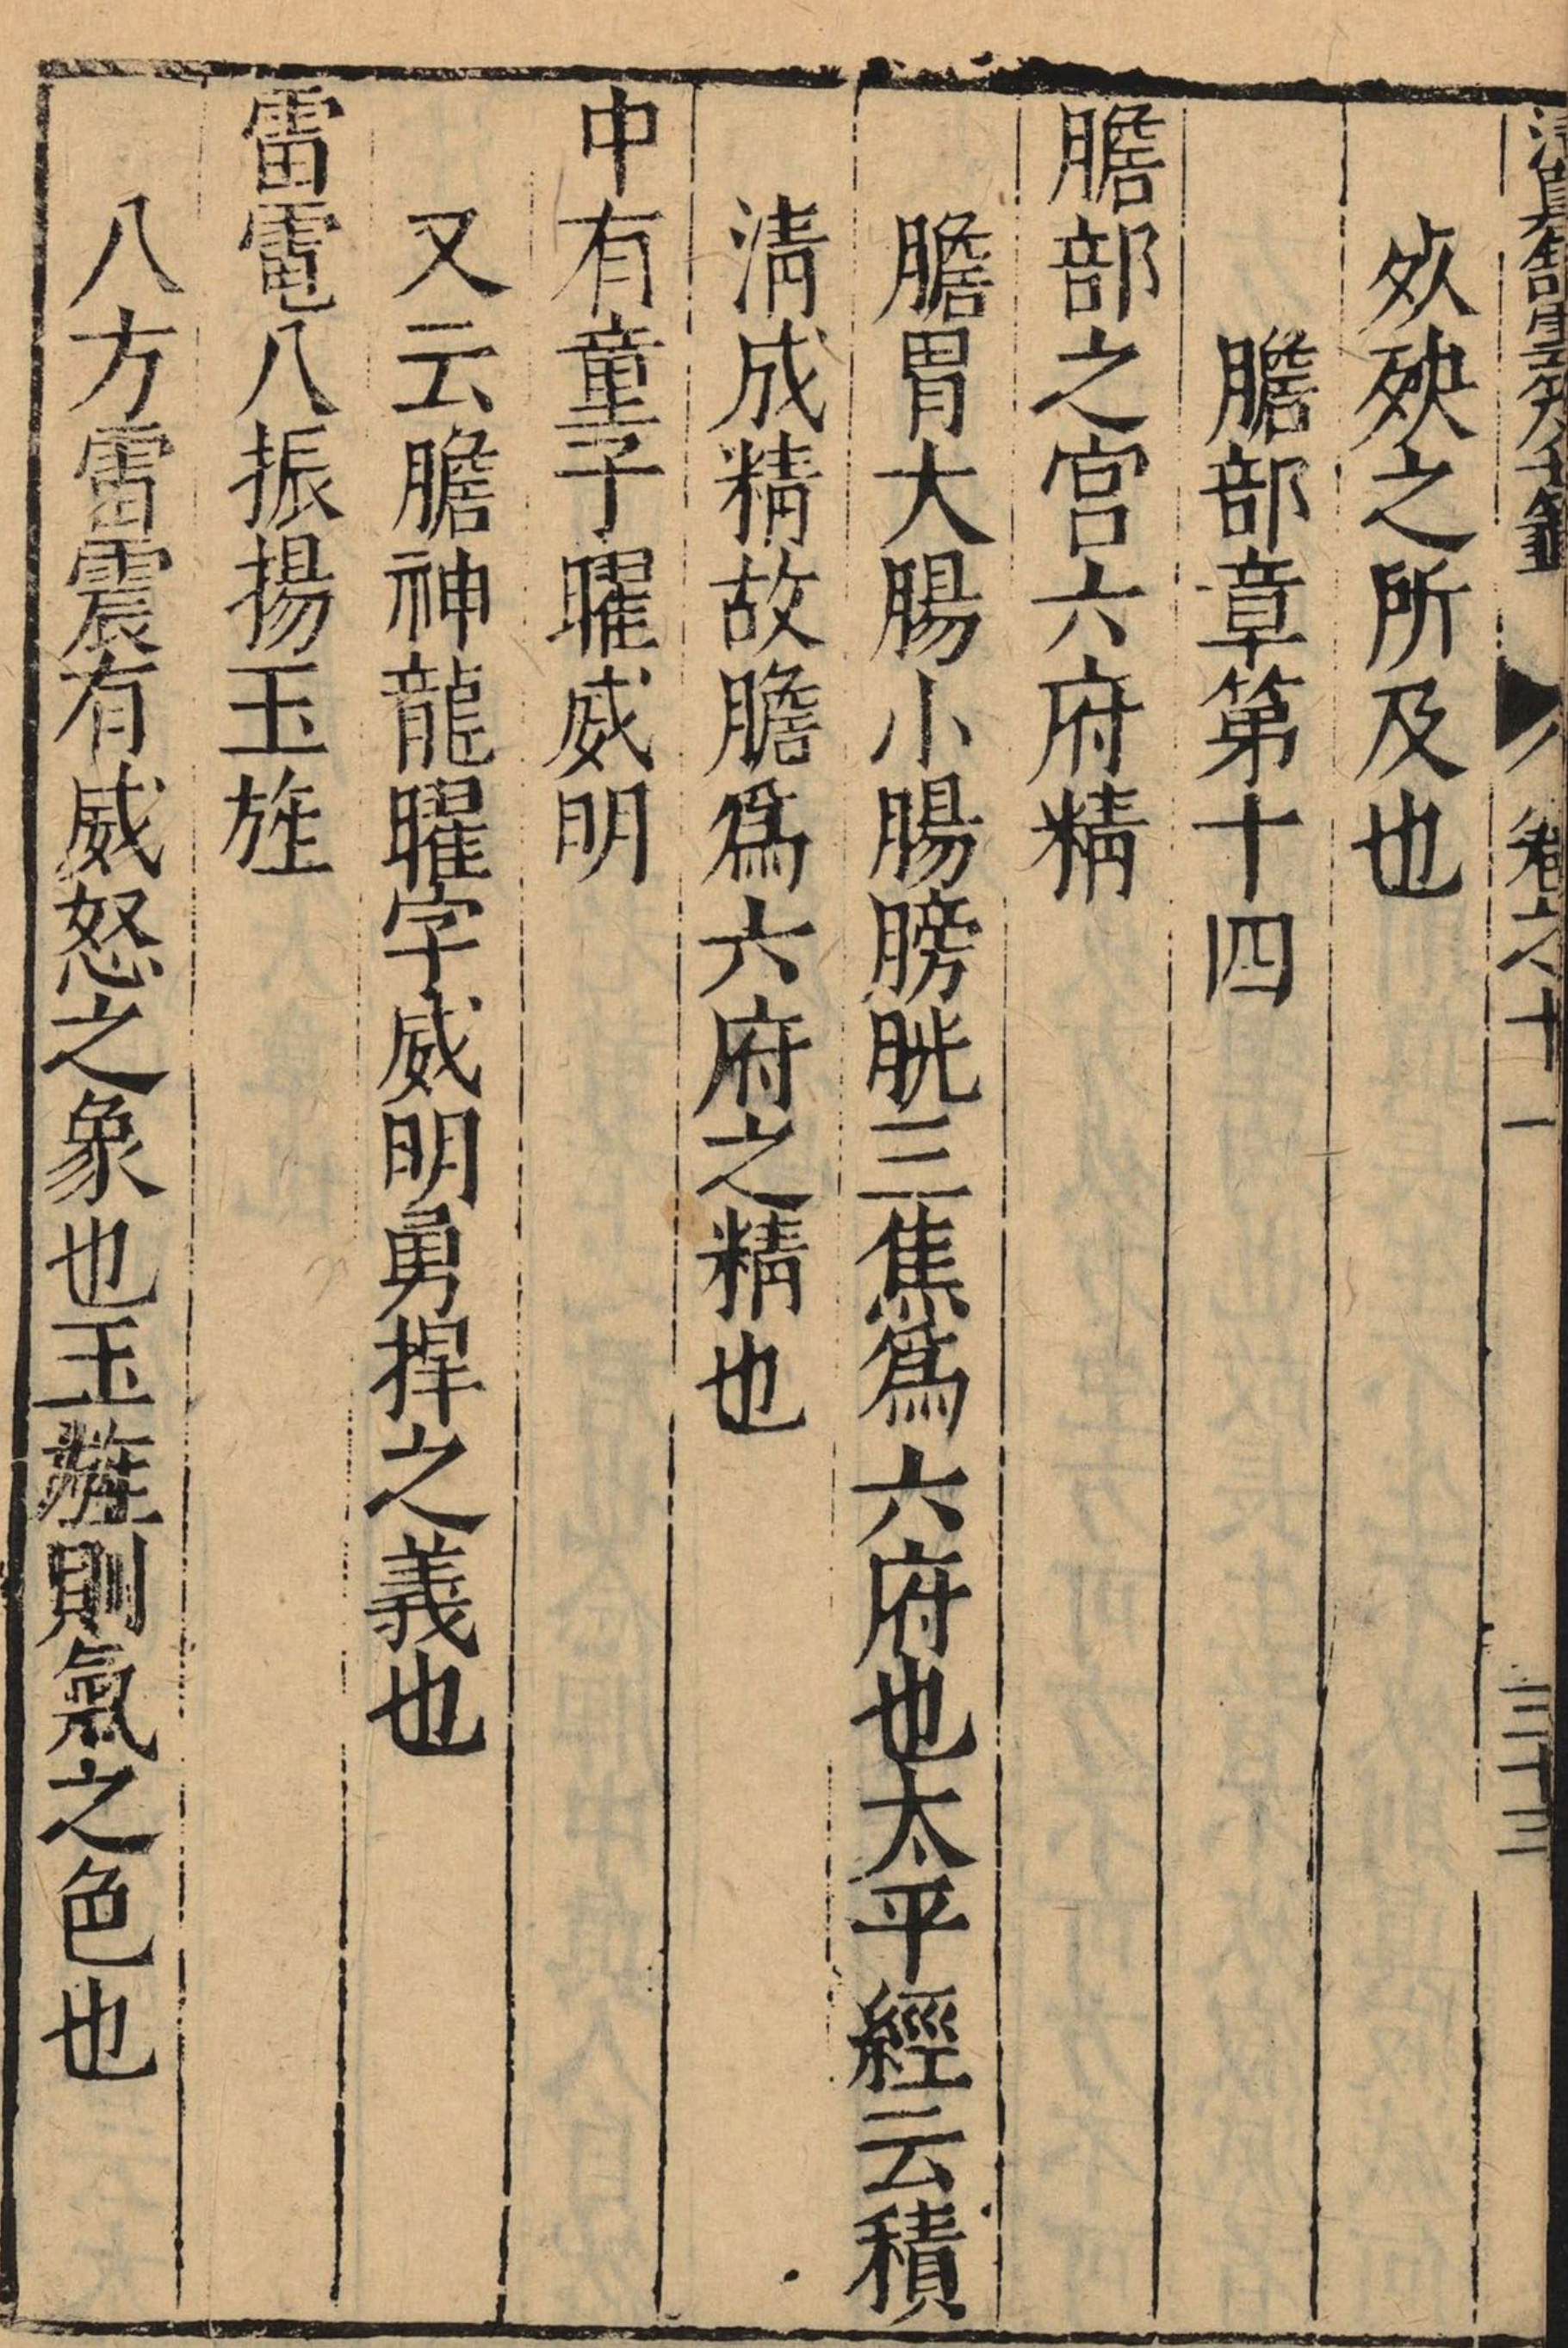 清真館雲笈七籤 卷之十一 三十三
殃之所及也
膽部章第十四
膽部之宮六府精
膽胃大腸小腸膀胱三焦為六府也太平經云積
清成精故膽為六府之精也
中有童子曜威明
又云膽神龍曜字威明勇捍之義也
雷電八振揚玉旌
八方雷震有威怒之象也玉旌則氣之色也